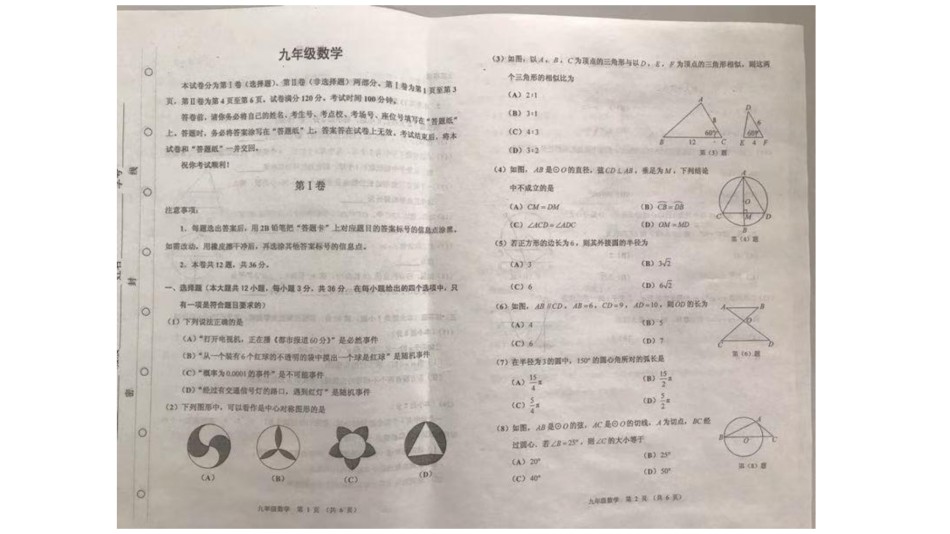 九年级数学
本试卷分为第Ⅰ卷（选择题）、第Ⅱ卷（非选择题）两部分。第Ⅰ卷为第1页至第3
页，第Ⅱ卷为第4页至第6页。试卷满分120分。考试时间100分钟。
答卷前，请你务必将自己的姓名、考生号、考点校、考场号、座位号填写在“答题纸”
上。答题时，务必将答案涂写在“答题纸”上，答案答在试卷上无效。考试结束后，将本
试卷和“答题纸”一并交回。
祝你考试顺利！
第Ⅰ卷
注意事项：
1．每题选出答案后，用2B铅笔把“答题卡”上对应题目的答案标号的信息点涂黑。
如需改动，用橡皮擦干净后，再选涂其他答案标号的信息点。
2．本卷共12题，共36分。
一、选择题（本大题共12小题，每小题3分，共36分．在每小题给出的四个选项中，只
有一项是符合题目要求的）
（1）下列说法正确的是
（A）“打开电视机，正在播《都市报道60分》”是必然事件
（B）“从一个装有6个红球的不透明的袋中摸出一个球是红球”是随机事件
（C）“概率为0.0001的事件”是不可能事件
（D）“经过有交通信号灯的路口，遇到红灯”是随机事件
（2）下列图形中，可以看作是中心对称图形的是
（A）	（B）	（C）	（D）
九年级数学 第1页（共6页）
线
封
密
（3）如图，以A，B，C为顶点的三角形与以D，E，F为顶点的三角形相似，则这两
个三角形的相似比为
（A）2∶1
（B）3∶1
（C）4∶3
（D）3∶2
A
D
8
6
60°
60°
B 12 C E 4 F
第（3）题
（4）如图，AB是⊙O的直径，弦CD⊥AB，垂足为M，下列结论
中不成立的是
（A）CM=DM （B）CB=DB
（C）∠ACD=∠ADC （D）OM=MD
A
O
C M D
B
第（4）题
（5）若正方形的边长为6，则其外接圆的半径为
（A）3 （B）3√2
（C）6 （D）6√2
（6）如图，AB∥CD，AB=6，CD=9，AD=10，则OD的长为
（A）4 （B）5
（C）6 （D）7
A B
O
C D
第（6）题
（7）在半径为3的圆中，150°的圆心角所对的弧长是
（A）15/4 π （B）15/2 π
（C）5/4 π （D）5/2 π
（8）如图，AB是⊙O的弦，AC是⊙O的切线，A为切点，BC经
过圆心．若∠B=25°，则∠C的大小等于
（A）20° （B）25°
（C）40° （D）50°
A
B O C
第（8）题
九年级数学 第2页（共6页）